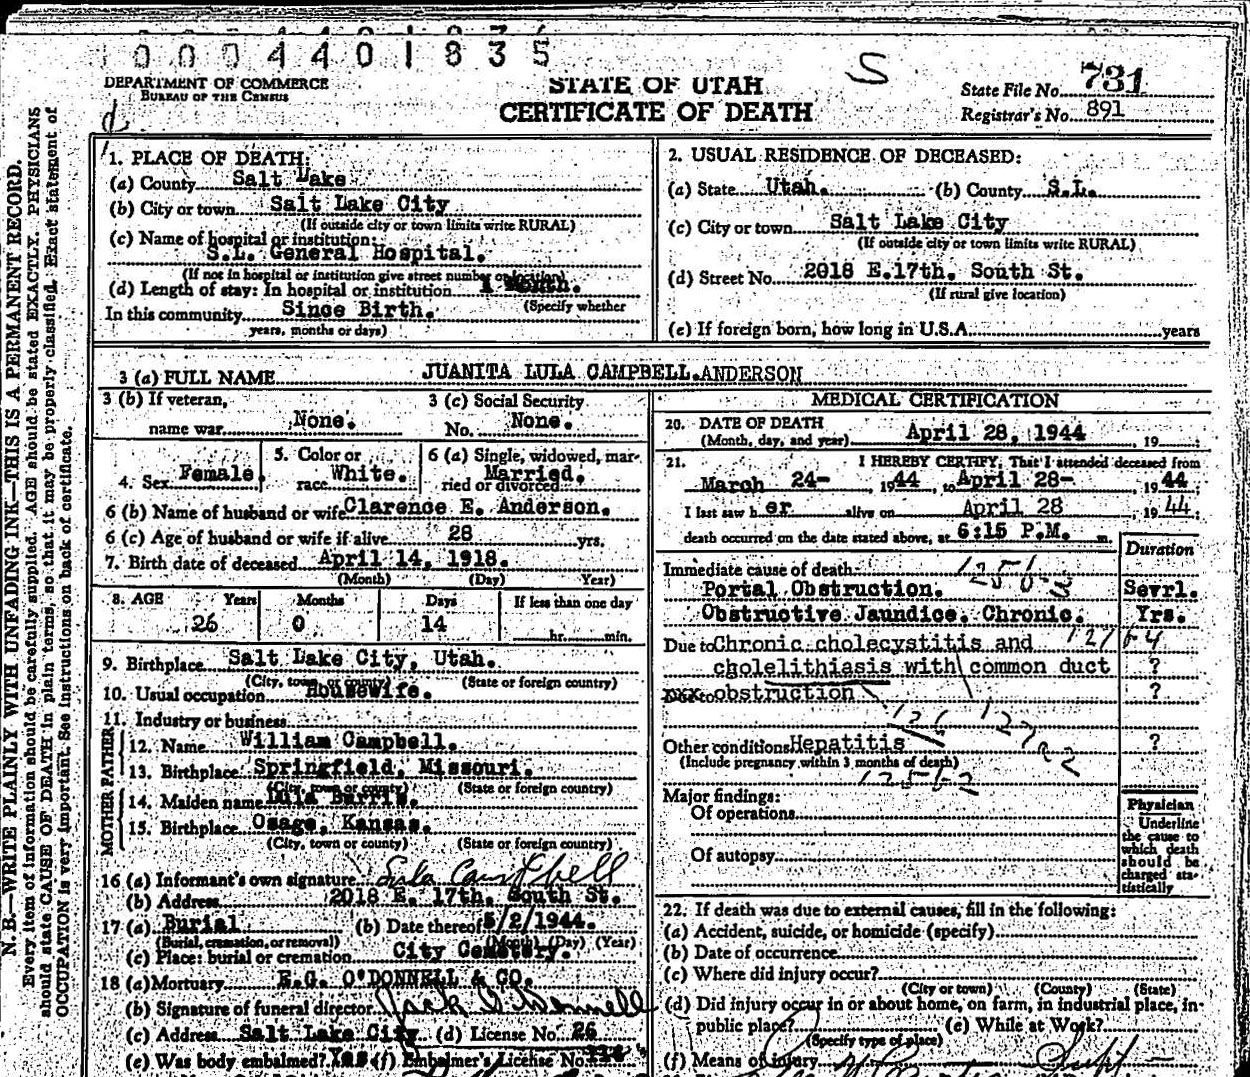 0004401835
DEPARTMENT OF COMMERCE
BUREAU OF THE CENSUS
STATE OF UTAH
CERTIFICATE OF DEATH
S
State File No. 731
Registrar's No. 891
d
N. B.—WRITE PLAINLY WITH UNFADING INK—THIS IS A PERMANENT RECORD.
Every item of information should be carefully supplied. AGE should be stated EXACTLY. PHYSICIANS
should state CAUSE OF DEATH in plain terms, so that it may be properly classified. Exact statement of
OCCUPATION is very important. See instructions on back of certificate.
1. PLACE OF DEATH:
(a) County Salt Lake
(b) City or town Salt Lake City
(If outside city or town limits write RURAL)
(c) Name of hospital or institution:
S.L. General Hospital.
(If not in hospital or institution give street number or location)
(d) Length of stay: In hospital or institution 1 Month.
(Specify whether
In this community Since Birth.
years, months or days)
2. USUAL RESIDENCE OF DECEASED:
(a) State Utah. (b) County S.L.
(c) City or town Salt Lake City
(If outside city or town limits write RURAL)
(d) Street No. 2018 E.17th. South St.
(If rural give location)
(e) If foreign born, how long in U.S.A. years
3 (a) FULL NAME JUANITA LULA CAMPBELL.ANDERSON
3 (b) If veteran,
name war None.
3 (c) Social Security
No. None.
4. Sex Female.
5. Color or
race White.
6 (a) Single, widowed, mar-
ried or divorced Married.
6 (b) Name of husband or wife Clarence E. Anderson.
6 (c) Age of husband or wife if alive 28 yrs.
7. Birth date of deceased April 14, 1918.
(Month) (Day) Year)
8. AGE Years Months Days If less than one day
26 0 14 hr. min.
9. Birthplace Salt Lake City, Utah.
(City, town, or county) (State or foreign country)
10. Usual occupation Housewife.
11. Industry or business
FATHER
12. Name William Campbell.
13. Birthplace Springfield, Missouri.
(City, town or county) (State or foreign country)
MOTHER
14. Maiden name Lula
15. Birthplace Osage, Kansas.
(City, town or county) (State or foreign country)
16 (a) Informant's own signature Lula Campbell
(b) Address 2018 E. 17th. South St.
17 (a) Burial (b) Date thereof 5/2/1944.
(Burial, cremation, or removal) (Month) (Day) (Year)
(c) Place: burial or cremation City Cemetery.
18 (a) Mortuary E.G. O'DONNELL & CO.
(b) Signature of funeral director Jack O'Donnell
(c) Address Salt Lake City (d) License No. 26
(e) Was body embalmed? Yes (f) Embalmer's License No.
MEDICAL CERTIFICATION
20. DATE OF DEATH
(Month, day, and year) April 28, 1944 , 19
21. I HEREBY CERTIFY, That I attended deceased from
March 24- , 1944 , to April 28- , 1944 ;
I last saw h er alive on April 28 , 1944 ;
death occurred on the date stated above, at 6:15 P.M. m.
Duration
Immediate cause of death:
Portal Obstruction. Sevrl.
Obstructive Jaundice. Chronic. Yrs.
Due to Chronic cholecystitis and
cholelithiasis with common duct ?
xxx to obstruction ?
Other conditions Hepatitis ?
(Include pregnancy within 3 months of death)
Major findings:
Of operations
Of autopsy
Physician
Underline
the cause to
which death
should be
charged sta-
tistically
22. If death was due to external causes, fill in the following:
(a) Accident, suicide, or homicide (specify)
(b) Date of occurrence
(c) Where did injury occur?
(City or town) (County) (State)
(d) Did injury occur in or about home, on farm, in industrial place, in-
public place? (e) While at Work?
(Specify type of place)
(f) Means of injury